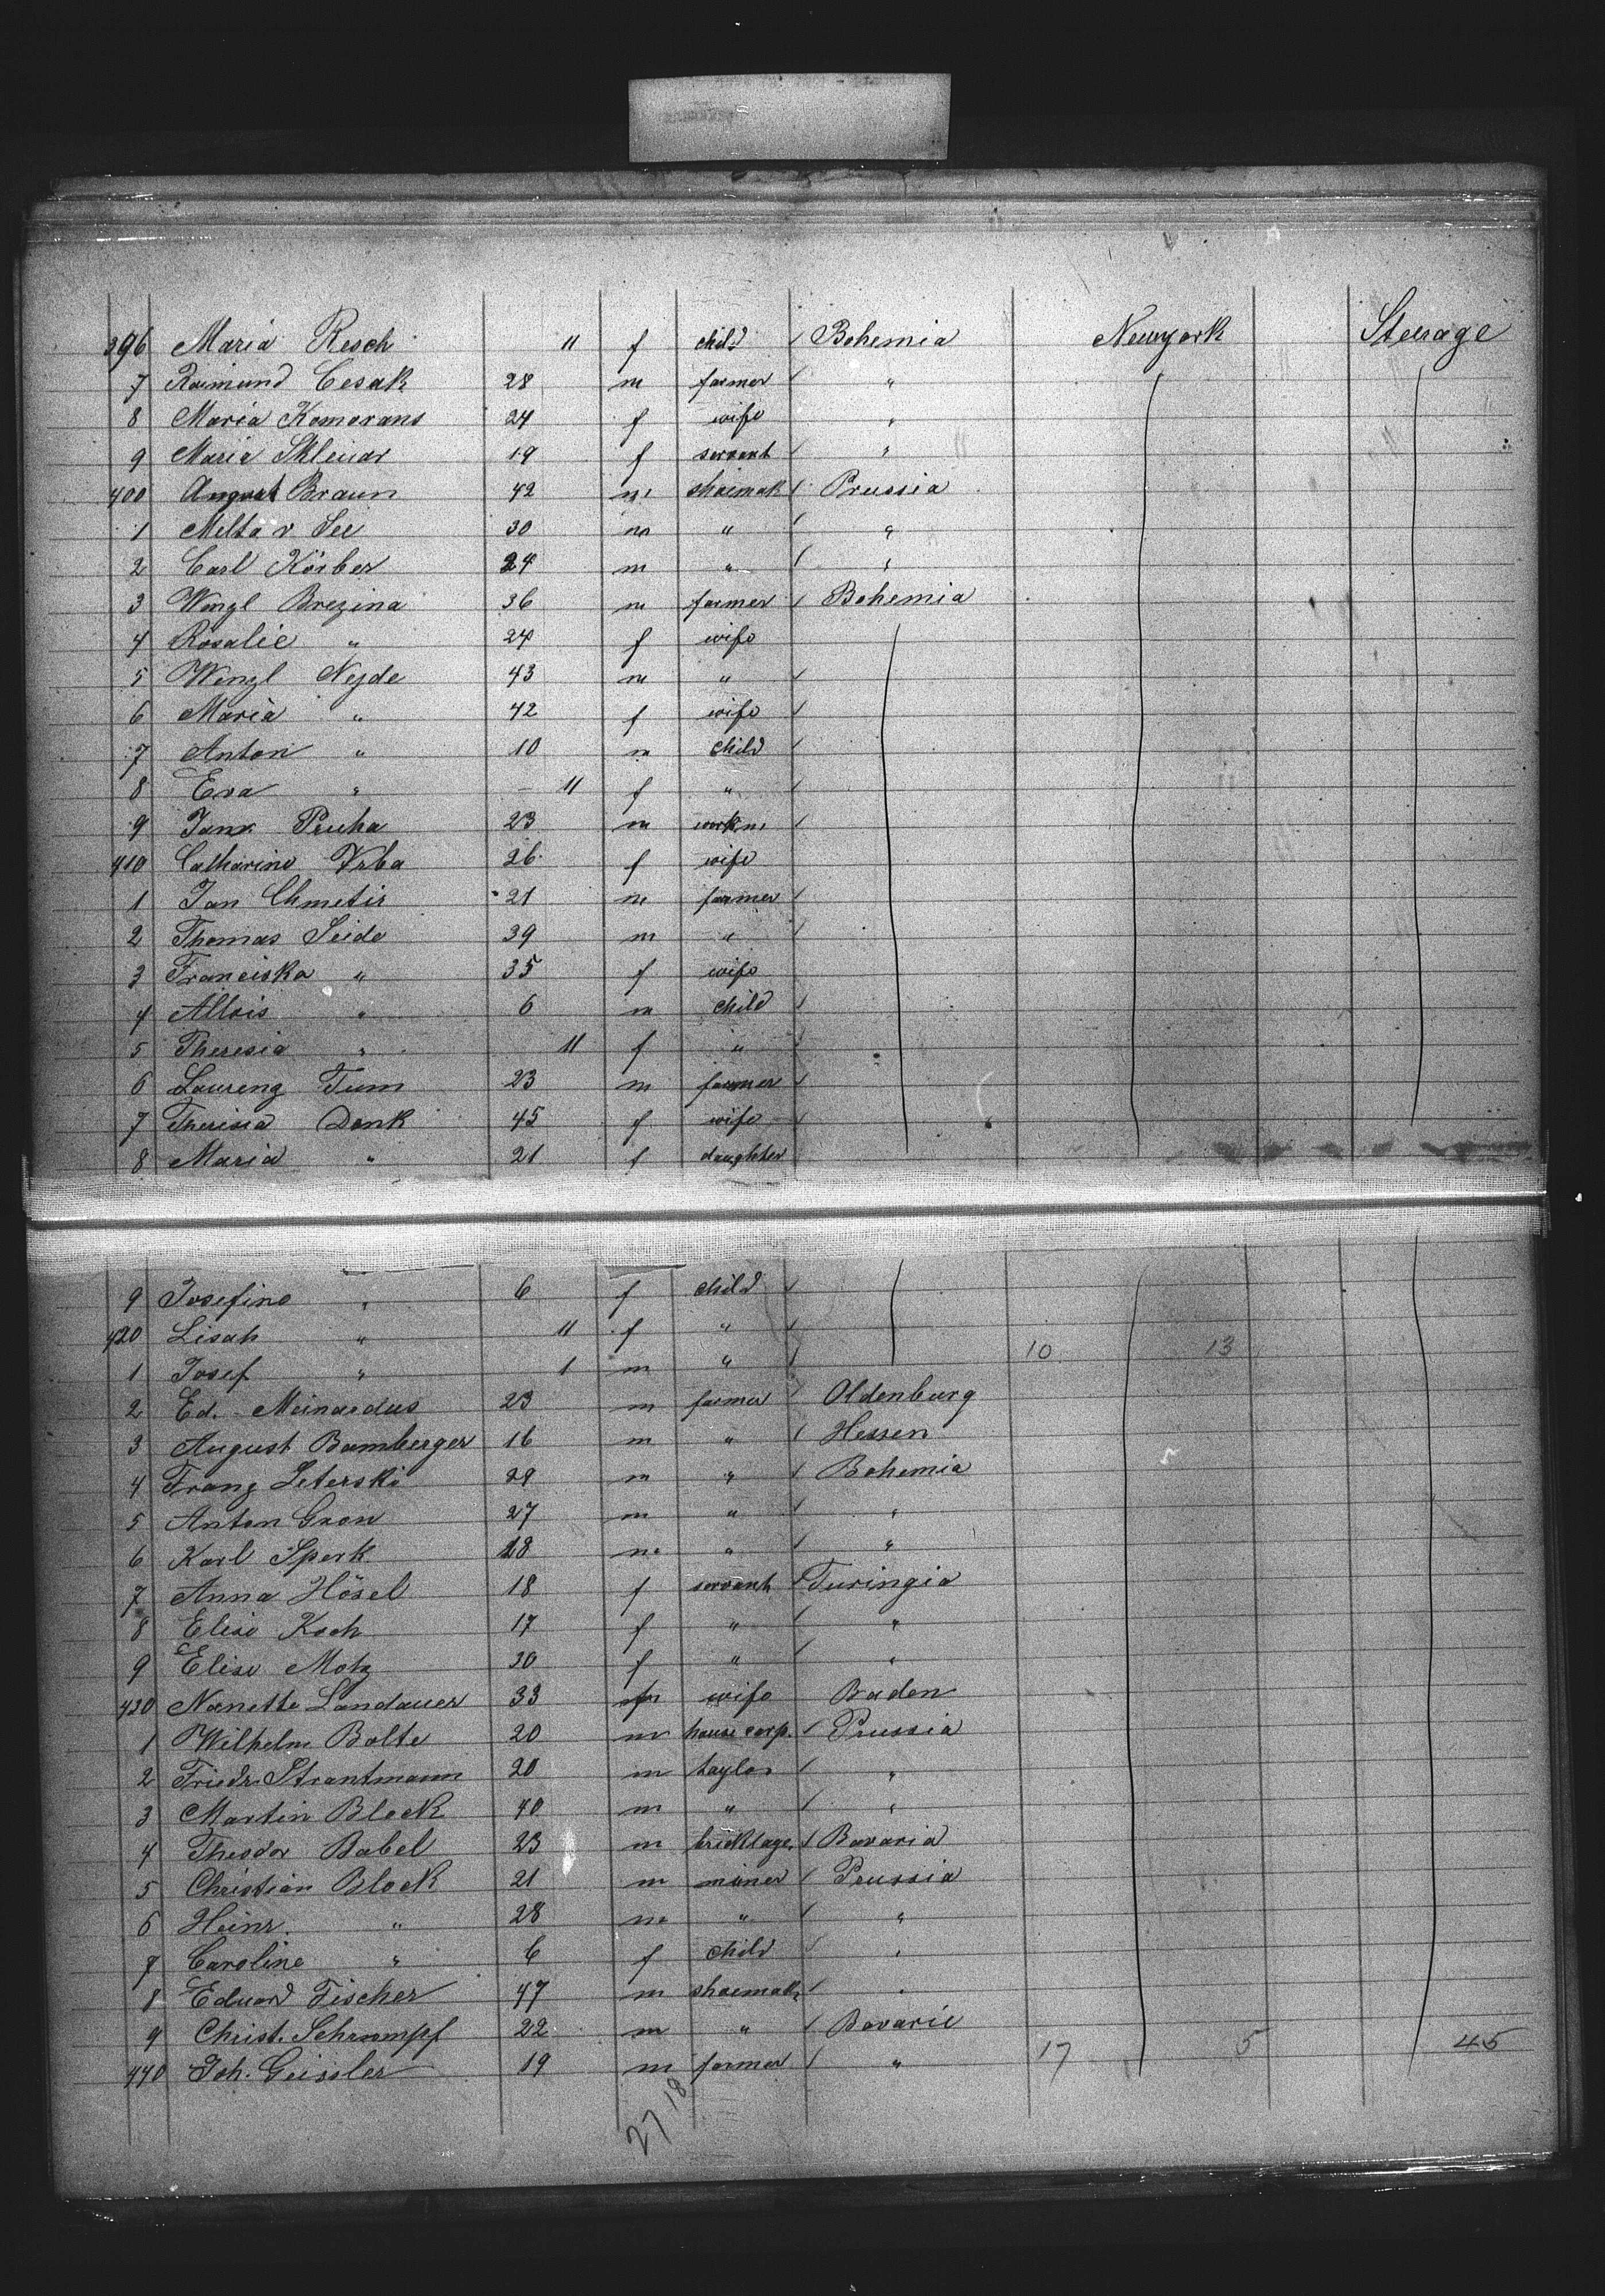 396 Maria Resch 11 f child / Bohemia Newyork Steerage
7 Raimund Cesak 28 m farmer / "
8 Maria Komorans 24 f wife "
9 Maria Sklenar 19 f servant / "
400 August Braun 42 m shoemak / Prussia
1 Melta v See 30 m " / "
2 Carl Körber 24 m " / "
3 Wenzl Brezina 36 m farmer / Bohemia
4 Rosalie " 24 f wife
5 Wenzl Nejde 43 m " /
6 Maria " 42 f wife /
7 Anton " 10 m child /
8 Eva " 11 f " /
9 Pruha 23 m workm /
410 Catharine Vrba 26 f wife
1 Jan Chmetir 21 m farmer /
2 Thomas Seide 39 m " /
3 Franciska " 35 f wife
4 Allois " 6 m child /
5 Theresia " 11 f " /
6 Laurenz Tum 23 m farmer /
7 Theresia Denk 45 f wife /
8 Maria " 21 f daughter
9 Josefine " 6 f child /
420 Lisah " 11 f " /
1 Josef " 1 m " / 10 13
2 Ed. Meinardus 23 m farmer / Oldenburg
3 August Bamberger 16 m " / Hessen
4 Franz Leterski 29 m " / Bohemia
5 Anton Gron 27 m " / "
6 Karl Sperk 18 m " / "
7 Anna Hösel 18 f servant / Turingia
8 Elise Koch 17 f " / "
9 Elise Motz 20 f " / "
430 Nanette Landauer 33 wife Baden
1 Wilhelm Bolte 20 m house carp. / Prussia
2 Friedr. Strantmann 20 m taylor / "
3 Martin Block 40 m " / "
4 Theodor Babel 23 m bricklaye. / Bavaria
5 Christian Block 21 m miner / Prussia
6 Heinr. " 28 m " / "
7 Caroline " 6 f child / "
8 Eduard Fischer 47 m shoemak. / "
9 Christ. Schrumpf 22 m " / Bavarie
440 Joh. Geissler 19 m farmer / " 17 5 45
27 18